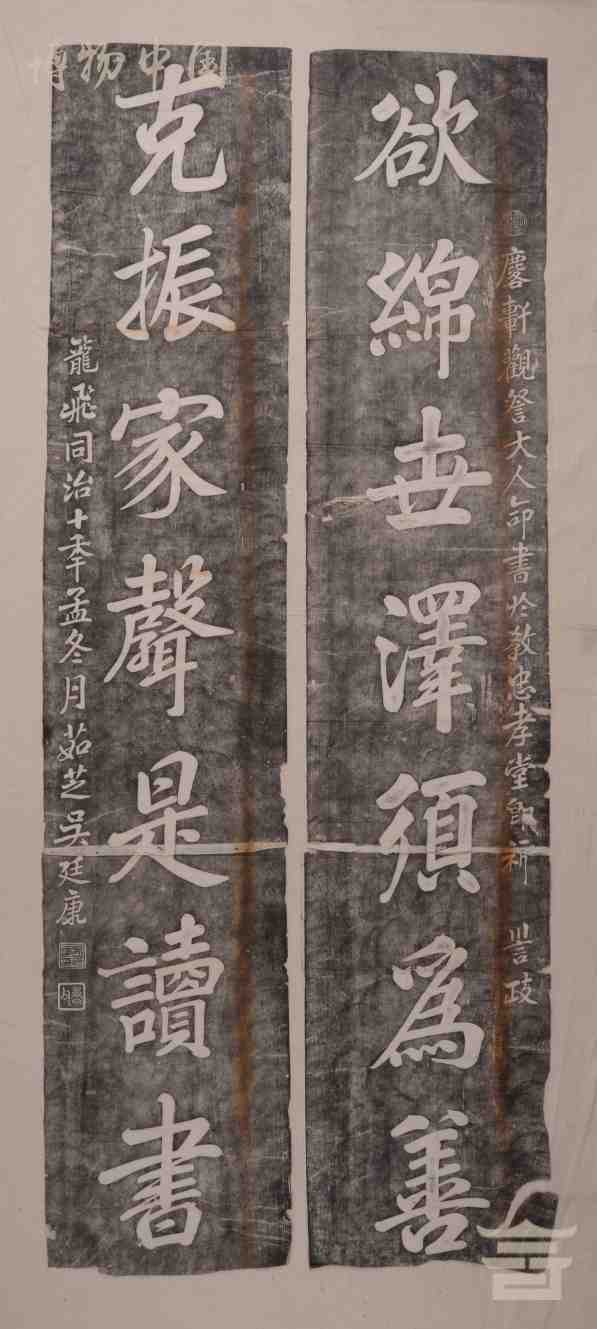 博物中国
慶軒觀詧大人命書於教忠孝堂即祈 訔政
欲綿世澤須為善
克振家聲是讀書
龍飛同治十年孟冬月茹芝吳廷康